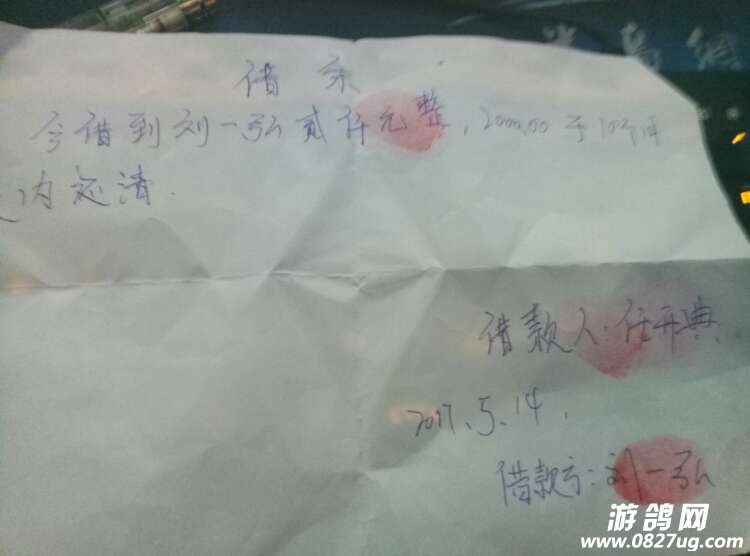 借条
今借到刘一弘贰仟元整，2000.00于10个月
之内还清.
借款人:任开典
2017.5.14.
借款方:刘一弘
游鸽网
www.0827ug.com